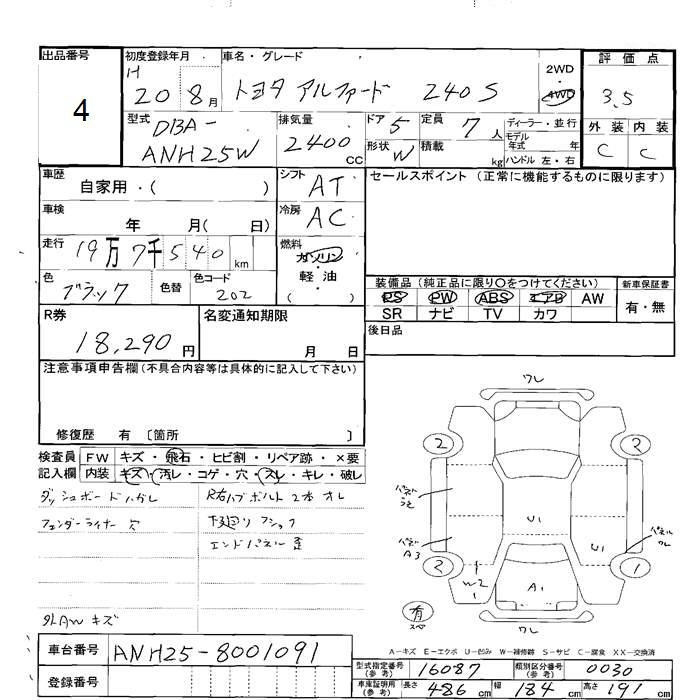 出品番号
4
初度登録年月
H
20 8月
車名・グレード
トヨタ アルファード 240S
2WD
4WD
評価点
3.5
外装 内装
C C
型式
DBA-
ANH25W
排気量
2400
CC
ドア 5
形状 W
定員 7人
積載 kg
ディーラー・並行
モデル
年式 年
ハンドル 左・右
車歴
自家用・( )
シフト
AT
セールスポイント (正常に機能するものに限ります)
車検
年 月( 日)
冷房
AC
走行
19万7千540km
燃料
ガソリン
・
軽油
( )
色
ブラック
色替
色コード
202
装備品 (純正品に限り○をつけてください)
新車保証書
PS PW ABS エアB AW
SR ナビ TV カワ
有・無
R券
18,290円
名変通知期限
月 日
後日品
注意事項申告欄 (不具合内容等は具体的に記入して下さい)
修復歴 有 〔箇所 〕
検査員
記入欄
FW キズ・飛石・ヒビ割・リペア跡・×要
内装 キズ・汚レ・コゲ・穴・スレ・キレ・破レ
ダッシュボードハガレ
R右ハブボルト2本オレ
フェンダーライナー 穴
下廻り
エンドパネル 歪
外AW キズ
ワレ
2
2
パネル
パネル
A3
U1
U1
パネル
ワレ
2
W2
1
A1
1
有
スペ
ワレ
A-キズ E-エクボ U-凹み W-補修跡 S-サビ C-腐食 XX-交換済
車台番号
ANH25-8001091
登録番号
型式指定番号
(参考)
16087
類別区分番号
(参考)
0030
車庫証明用
(参考)
長さ 486cm 幅 184cm 高さ 191cm